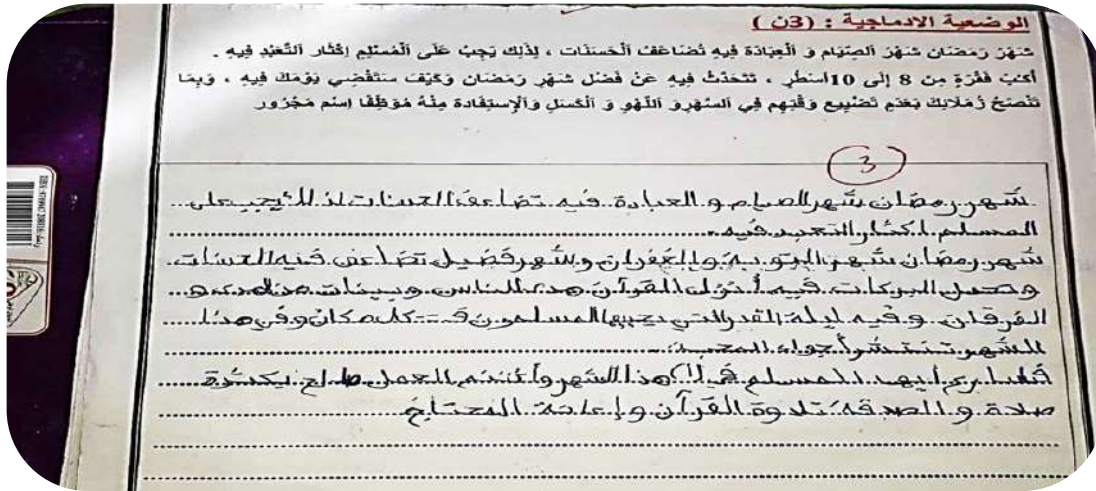 الوضعية الادماجية : (3ن)
شَهْرُ رَمَضَان شَهْرُ الصِّيَامِ وَ الْعِبَادَةِ فِيهِ تُضَاعَفُ الْحَسَنَات ، لِذَلِك يَجِبُ عَلَى الْمُسْلِمِ إِكْثَار التَّعَبُّد فِيهِ .
أكتبْ فَقْرَةً مِن 8 إِلَى 10أسطر ، تَتَحَدَّثُ فِيهِ عَنْ فَضْل شَهْرِ رَمَضَان وَكَيْفَ سَتَقْضِي يَوْمَكَ فِيهِ ، وَبِمَا
تَنْصَحُ زُمَلَائِكَ بِعَدَم تَضْيِيع وَقْتِهِم فِي السَّهْرِ وَ اللَّهْوِ وَ الْكَسَلِ وَالْإِسْتِفَادَة مِنْهُ مُوَظِّفًا إسْم مَجْرُور
3
شهر رمضان شهر الصيام و العبادة فيه تضاعف الحسنات لذلك يجب على
المسلم اكثار التعبد فيه
شهر رمضان شهر التوبة والغفران وشهر فضيل تضاعف فيه الحسنات
وتحمل البركات فيه أنزل القرآن هدى للناس وبينات من الهدى و
الفرقان و فيه ليلة القدر التي يحيها المسلمون في كل مكان وفي هذا
الشهر تنتشر أجواء المحبة
أيها المسلم هذا الشهر وأغتنم العمل صالح بكثرة
صلاة و الصدقة تلاوة القرآن و إعانة المحتاج